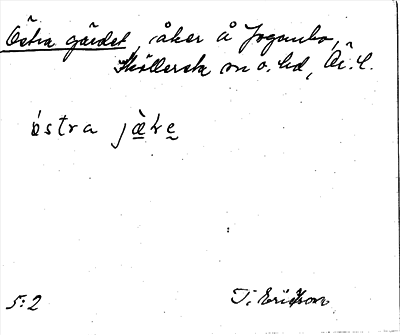 Östra gärdet, åker å Jogersbo,
Sköllersta sn o. hd, Ör. l.
östra jære
5:2
T. Ericsson